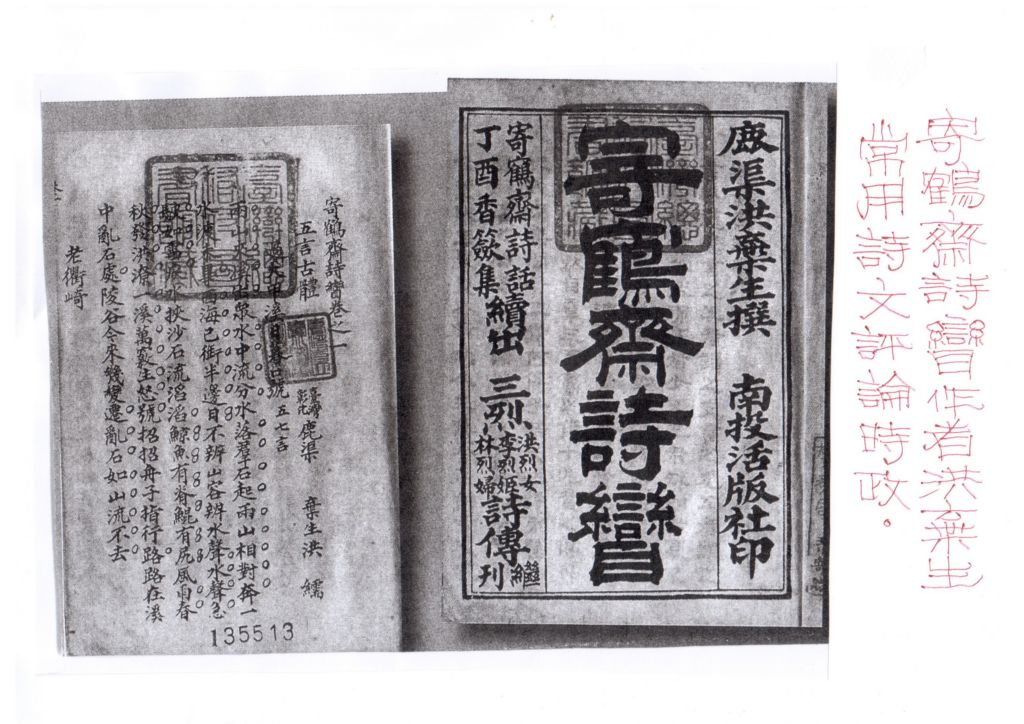 寄鶴齋詩矕作者洪棄生
常用詩文評論時政。
鹿渠洪棄生撰 南投活版社印
寄鶴齋詩矕
寄鶴齋詩話續出 三烈 洪烈女 李烈姬 林烈婦 詩傳 繼刊
丁酉香奩集
寄鶴齋詩矕卷之一
臺灣彰化鹿渠 棄生洪繻
五言古體 五七言
雨山
泉水中流分水落群石起兩山相對奔一
海已銜半邊日不辨山容辨水聲水聲急
挾沙石流滔滔鯨魚有脊鯤有尻風雨春
秋發洪滌一溪萬竅生怒號招招舟子指行路路在溪
中亂石處陵谷今來幾變遷亂石如山流不去
老衢崎
135513